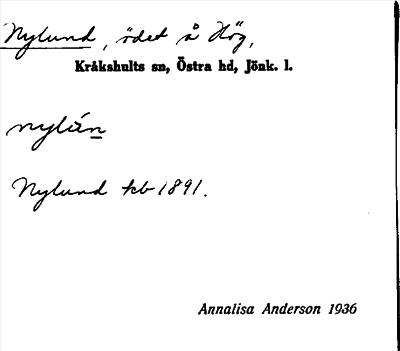 Nylund, ödet å Hög,
Kråkshults sn, Östra hd, Jönk. l.
nylán
Nylund kb 1891.
Annalisa Anderson 1936